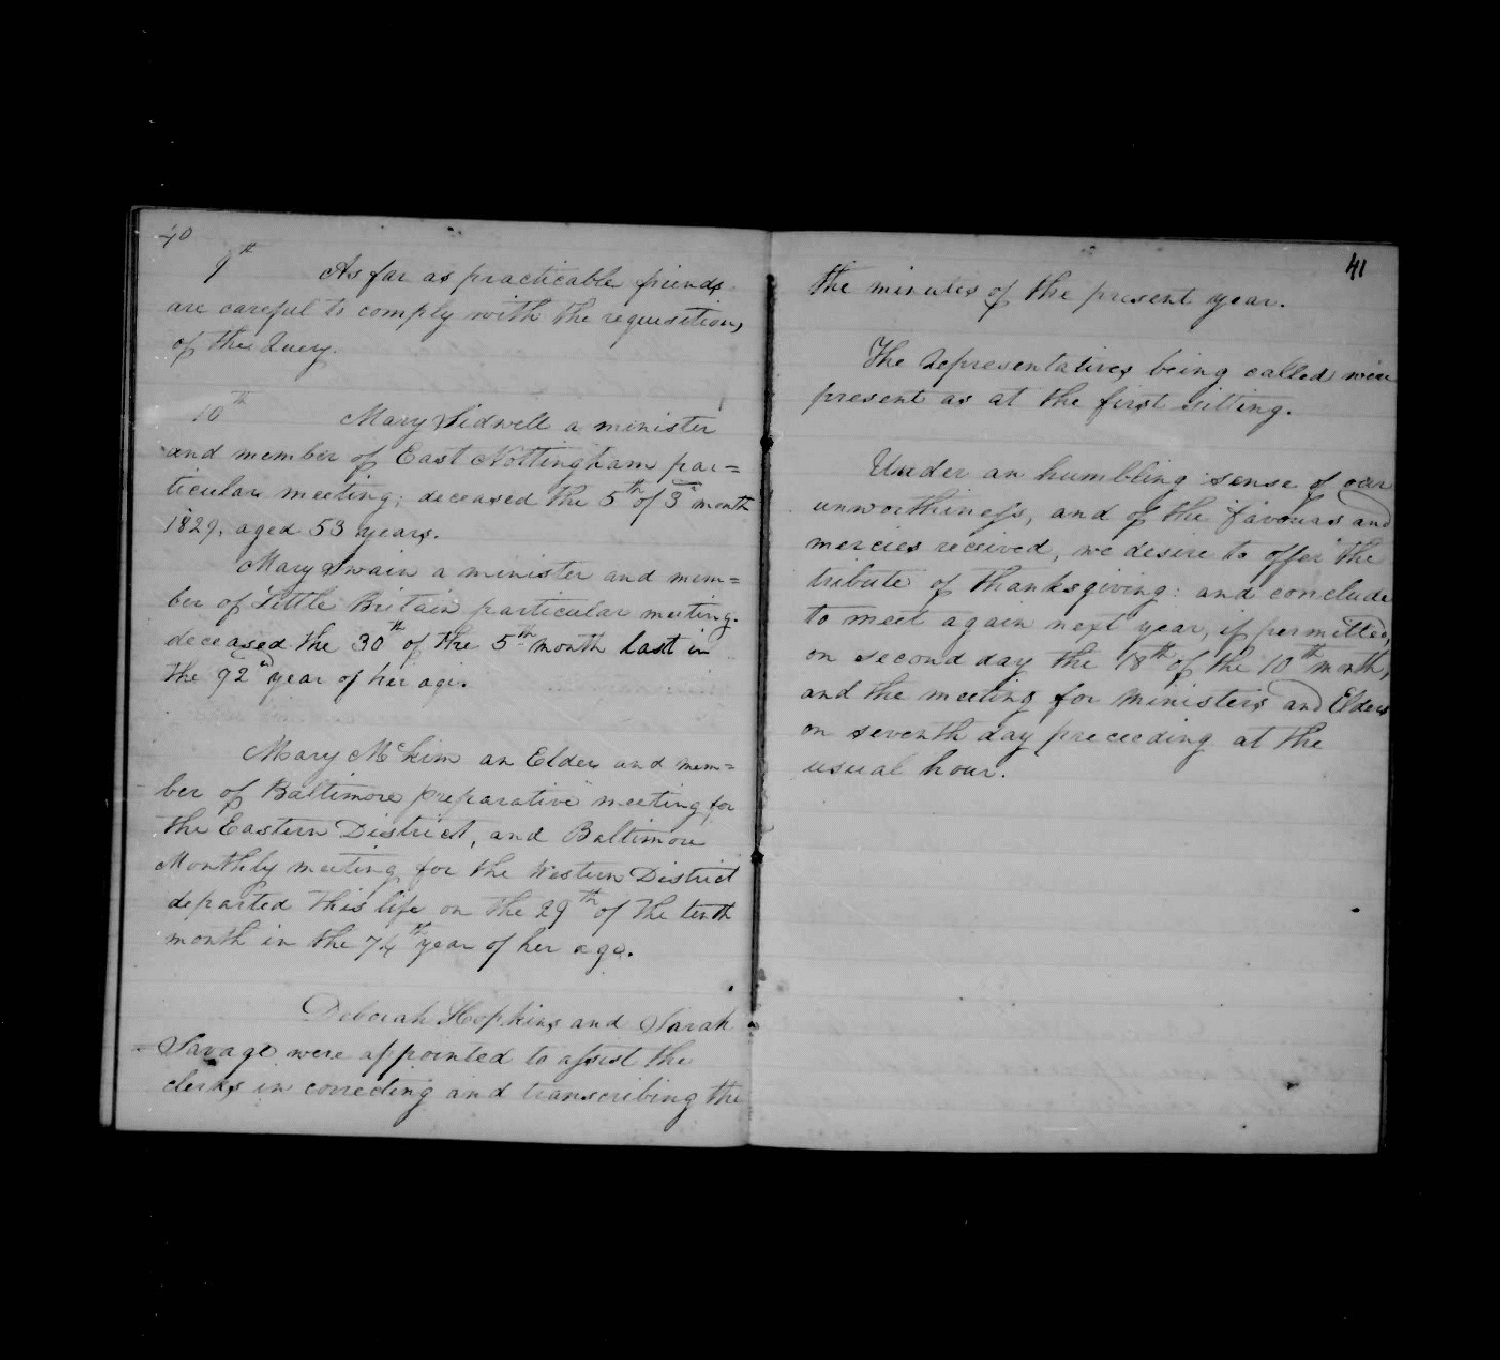 40
9th As far as practicable friends
are careful to comply with the requisitions
of the Query.
10th Mary Sidwell a minister
and member of East Nottingham par=
ticular meeting; deceased the 5th of 3d month
1829, aged 53 years.
Mary Swain a minister and mem=
ber of Little Britain particular meeting.
deceased the 30th of the 5th month last in
the 92nd year of her age.
Mary McKim an Elder and mem=
ber of Baltimore preparative meeting for
the Eastern District, and Baltimore
Monthly meeting for the Western District
departed this life on the 29th of the tenth
month in the 74th year of her age.
Deborah Hopkins and Sarah
Savage were appointed to assist the
clerks in correcting and transcribing the
41
the minutes of the present year.
The Representatives being called were
present as at the first sitting.
Under an humbling sense of our
unworthiness, and of the favours and
mercies received, we desire to offer the
tribute of thanksgiving: and conclude
to meet again next year, if permitted,
on second day the 18th of the 10th month,
and the meeting for Ministers and Elders
on seventh day preceeding at the
usual hour.